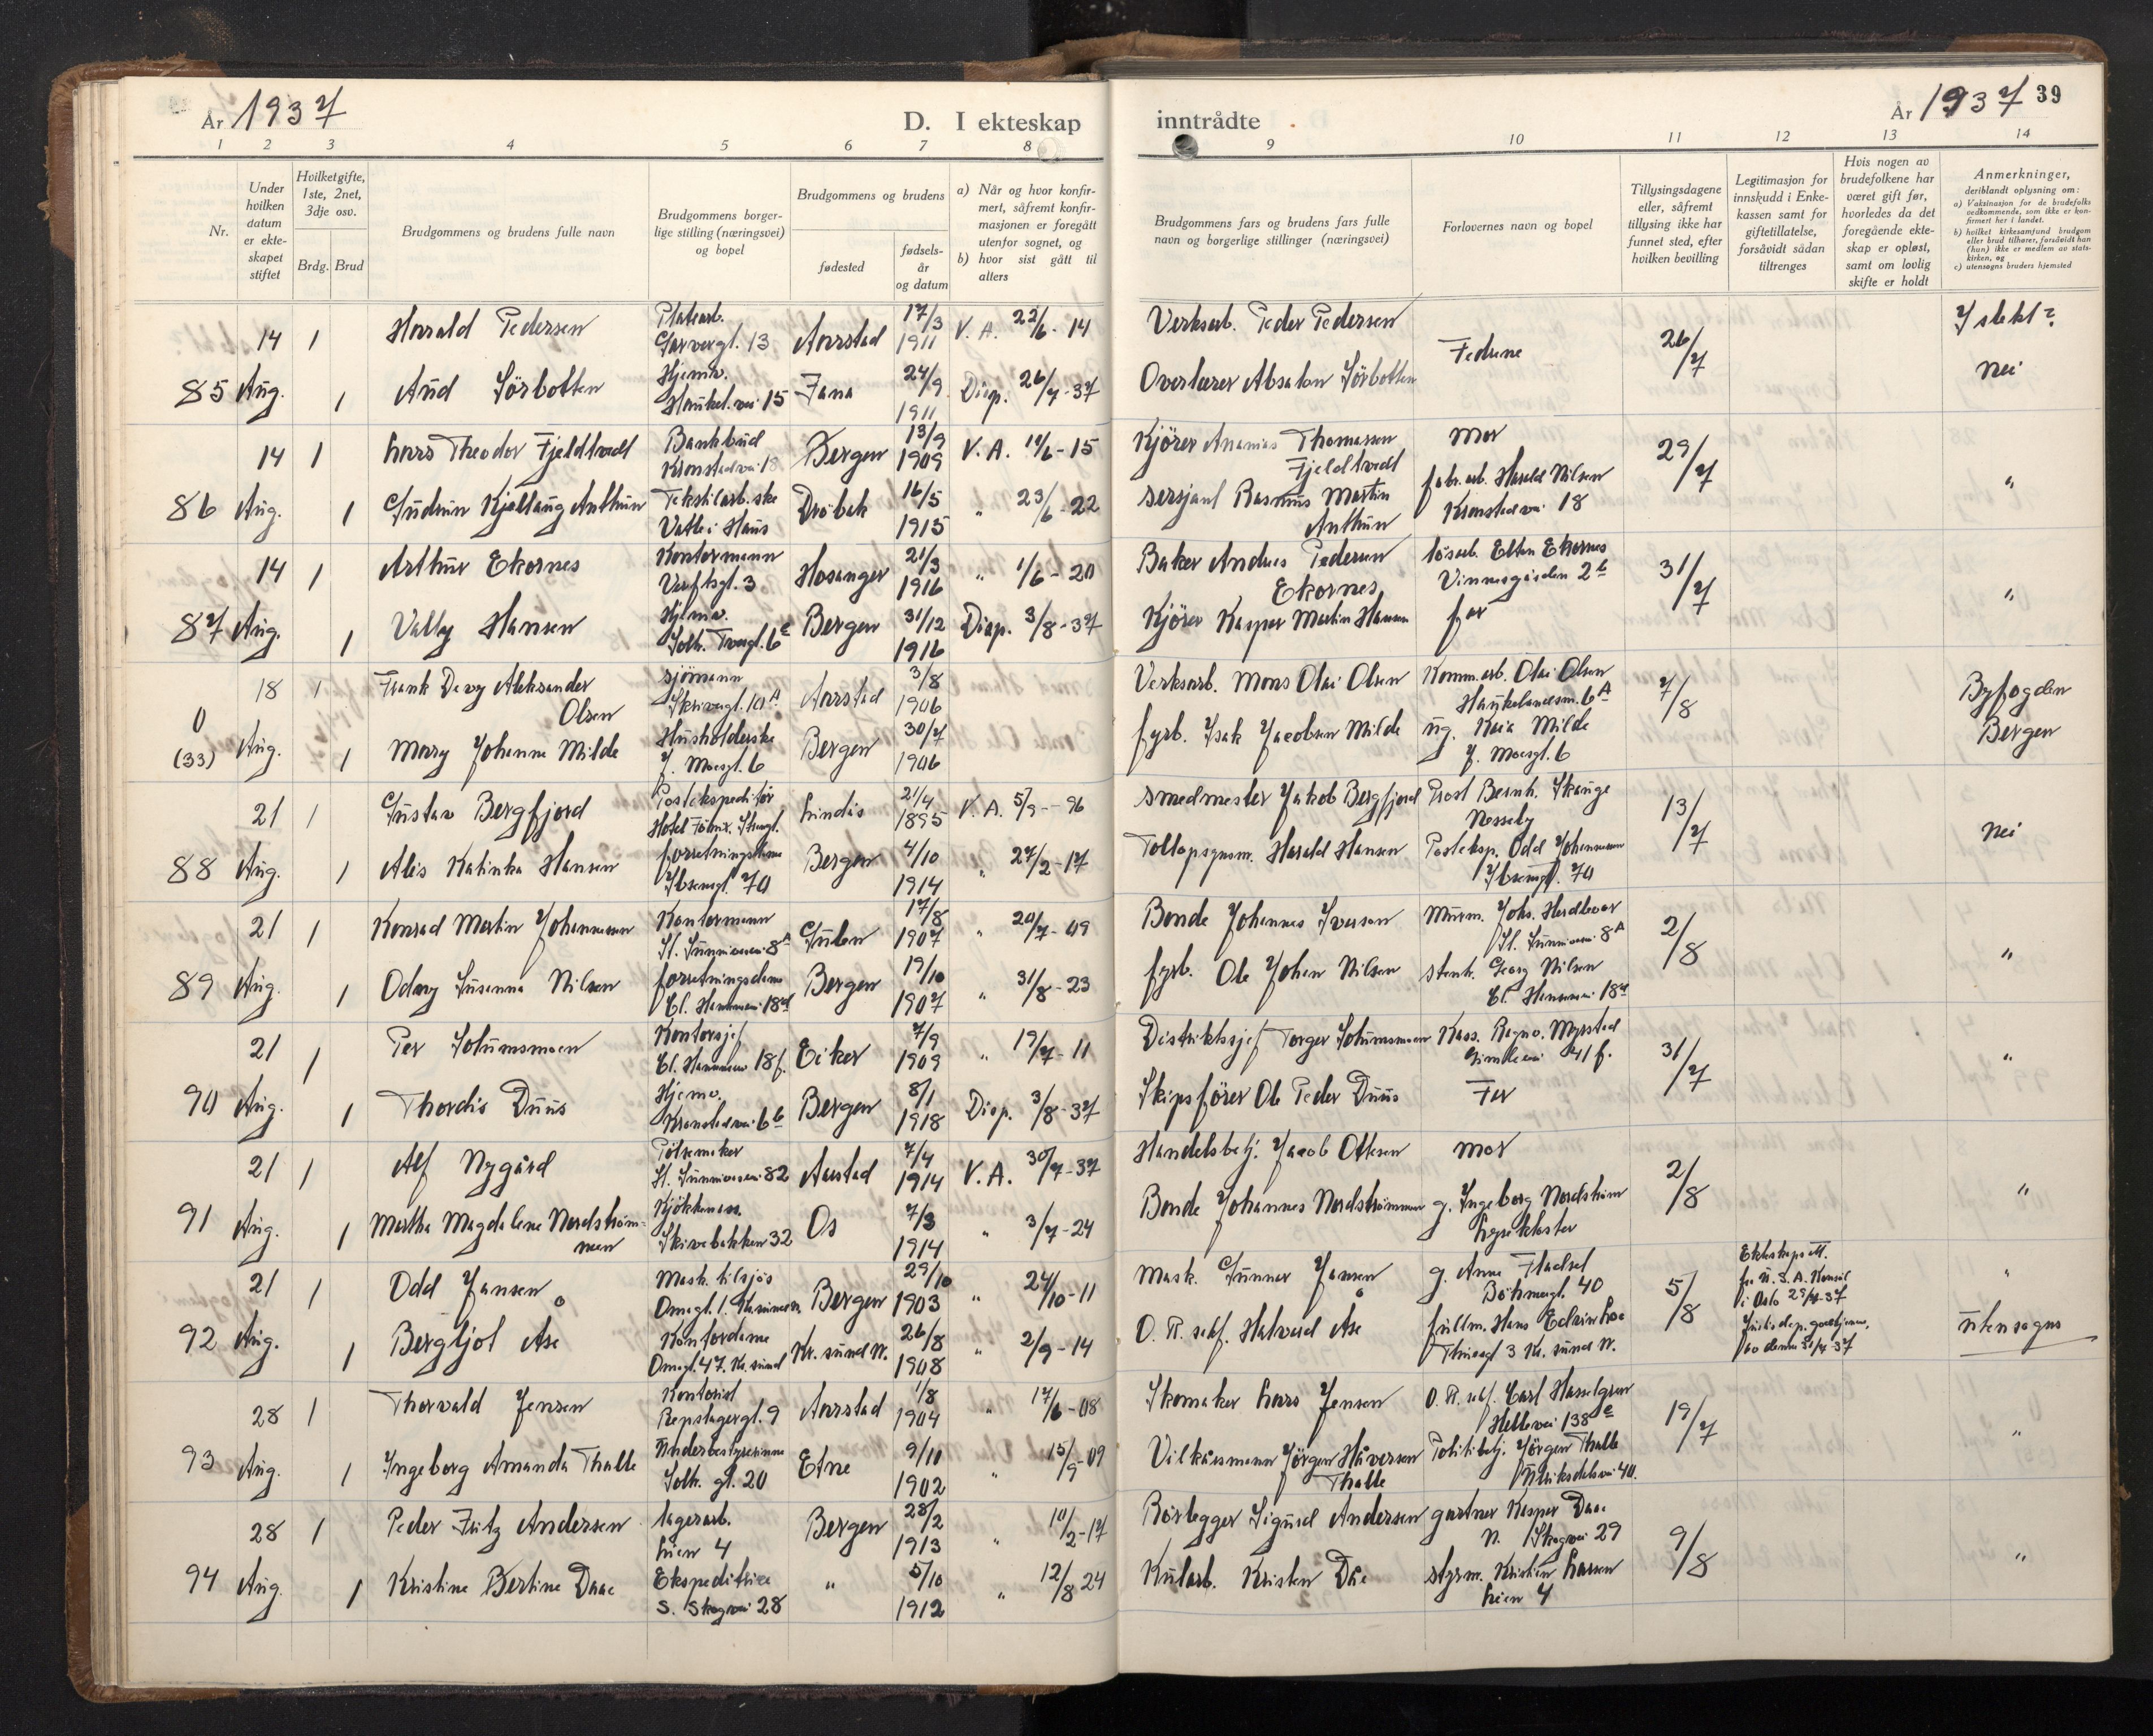 År 1937
D. I ekteskap
1 2 3 4 5 6 7 8
Nr.
Under hvilken datum er ekteskapet stiftet
Hvilketgifte, 1ste, 2net, 3dje osv.
Brdg. Brud
Brudgommens og brudens fulle navn
Brudgommens borgerlige stilling (næringsvei) og bopel
Brudgommens og brudens
fødested
fødselsår og datum
a) Når og hvor konfirmert, såfremt konfirmasjonen er foregått utenfor sognet, og
b) hvor sist gått til alters
14 1 Harald Pedersen Platearb. Garvergt. 13 Aarstad 17/3 1911 V. A. 22/6 - 14
85 Aug. 1 Aud Sörbotten Hjemv. Haukel.vei 15 Fana 24/9 1911 Disp. 26/7 - 37
14 1 Lars Theodor Fjeldtvedt Bankbud Kronstadvei 18 Bergen 13/9 1909 V. A. 11/6 - 15
86 Aug. 1 Gudrun Kjellaug Anthun Tekstilarb.ske Vatle i Haus Dröbak 16/5 1915 " 23/6 - 22
14 1 Arthur Ekornes Kontormann Verftsgt. 3 Hosanger 21/3 1916 " 1/6 - 20
87 Aug. 1 Vally Hansen Hjemv. Solh. Tvergt. 6 c Bergen 31/12 1916 Disp. 3/8 - 37
18 1 Frank Davy Aleksander Olsen sjömann Skrivergt. 10 A Aarstad 3/8 1906
0 (33) Aug. 1 Mary Johanne Milde Husholderske J. Moesgt. 6 Bergen 30/7 1906
21 1 Gustav Bergfjord Postekspeditör Lindås 21/4 1895 V. A. 5/9 - 96
88 Aug. 1 Alis Katinka Hansen forretningsdame Ibsensgt. 70 Bergen 4/10 1914 " 27/2 - 17
21 1 Konrad Martin Johannesen Kontormann St. Sunnivavei 8 A Gulen 17/8 1907 " 20/7 - 09
89 Aug. 1 Odny Susanna Nilsen forretningsdame Bergen 19/10 1907 " 31/8 - 23
21 1 Per Solumsmoen Kontorsjef Eiker 7/9 1909 " 19/7 - 11
90 Aug. 1 Thordis Duus Hjemv. Kronstadvei 6 b Bergen 8/1 1918 Disp. 3/8 - 37
21 1 Alf Nygård Pölsemaker St. Sunnivavei 82 Aarstad 7/4 1914 V. A. 30/7 - 37
91 Aug. 1 Martha Magdalene Nordströmmen Kjökkenass. Skivebakken 32 Os 7/3 1914 " 3/7 - 24
21 1 Odd Jansen Mask. tilsjös Bergen 29/10 1903 " 24/10 - 11
92 Aug. 1 Bergljot Åse Kontordame Omagt. 47. Kr. sund Kr. sund N. 26/8 1908 " 2/9 - 14
28 1 Thorvald Jensen Kontorist Repslagergt. 9 Aarstad 1/8 1904 " 17/6 - 08
93 Aug. 1 Ingeborg Amanda Thalle Underbestyrerinne Solh. gt. 20 Etne 9/11 1902 " 15/9 - 09
28 1 Peder Fritz Andersen lagerarb. Lien 4 Bergen 28/2 1913 " 10/2 - 17
94 Aug. 1 Kristine Bertine Daae Ekspeditrice S. Skogvei 28 " 5/10 1912 " 12/8 24
inntrådte
År 1937 39
9 10 11 12 13 14
Brudgommens fars og brudens fars fulle navn og borgerlige stillinger (næringsvei)
Forlovernes navn og bopel
Tillysingsdagene eller, såfremt tillysing ikke har funnet sted, efter hvilken bevilling
Legitimasjon for innskudd i Enkekassen samt for giftetillatelse, forsåvidt sådan tiltrenges
Hvis nogen av brudefolkene har været gift før, hvorledes da det foregående ekteskap er opløst, samt om lovlig skifte er holdt
Anmerkninger, deriblandt oplysning om:
a) Vaksinasjon for de brudefolks vedkommende, som ikke er konfirmert her i landet.
b) hvilket kirkesamfund brudgom eller brud tilhører, forsåvidt han (hun) ikke er medlem av statskirken, og
c) utensogns bruders hjemsted
Verksarb. Peder Pedersen Fedrene 26/7 I slekt?
Overlærer Absalon Sörbotten Nei
Kjörer Ananias Thomassen Fjeldtvedt Mor 29/7
sersjant Rasmus Martin Anthun fabr. arb. Harald Nilsen Kronstadvei 18 "
Baker Andreas Pedersen Ekornes lösarb. Elten Ekornes Vinnesgården 2 b 31/7
Kjörer Kasper Martin Hansen far "
Verksarb. Mons Olai Olsen Komm.arb. Olai Olsen Haukelandsm. 6 A 7/8 Byfogden
fyrb. Isak Jacobsen Milde ug. Kaia Milde J. Moesgt. 6 Bergen
smedmester Jakob Bergfjord Prost Bernh. Skauge Nesseby 13/7
Tollopsynsm. Harald Hansen Posteksp. Odd Johannessen Ibsensgt. 70 Nei
Bonde Johannes Iversen Murm. Johs. Herdlevær St. Sunnivavei 8 A 2/8
fyrb. Ole Johan Nilsen Georg Nilsen "
Distriktssjef Torger Solumsmoen Kass. Ragnv. Myrstad Gimleveien 41 f. 31/7
Skipsförer Ole Peder Duus Far "
Handelsbetj. Jacob Ottesen Mor 2/8
Bonde Johannes Nordströmmen g. Ingeborg Nordström Lysekloster "
Mask. Gunnar Jansen g. Anne Fladset Böhmergt. 40 5/8 Ekteskapsatt. fra U. S. A. Konsul i Oslo 29/7-37 "
O. R. sakf. Halvard Åse fullm. Hans Edvin Thuesgt 3 Kr. sund N. utensogns
Skomaker Lars Jensen O. R. sakf. Carl Hasselgren Hellevei 138 e 19/7
Vilkårsmann Jörgen Håversen Thalle Politibetj. Jörgen Thalle Ulriksdalsvei 40. "
Rörlegger Sigurd Andersen gartner Kasper Daae N. Skogvei 29 9/8
Kularb. Kristen Dåe styrm. Kristian Larsen Lien 4 "